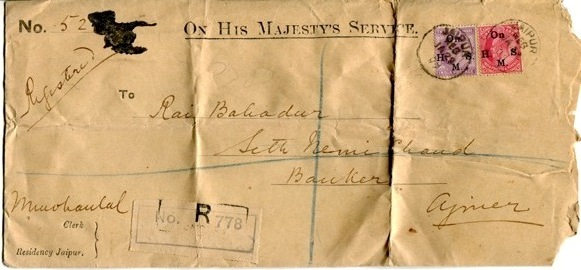 No. 52
ON HIS MAJESTY'S SERVICE.
JAIPUR
On
H. S.
M.
H. S.
M.
Registered
To
Rai Bahadur
Seth Nemi Chand
Banker
Ajmer
Clerk
Residency Jaipur.
R
No. 778